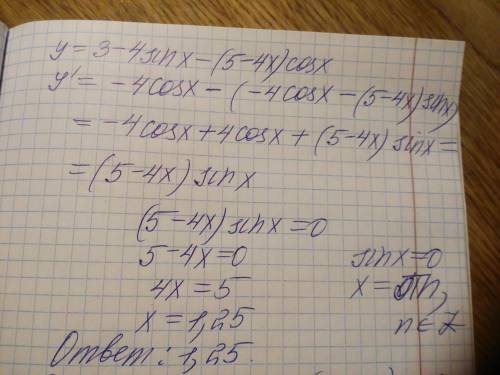 y = 3-4sinx-(5-4x)cosx
y' = -4cosx-(-4cosx-(5-4x)sinx)
= -4cosx+4cosx+(5-4x)sinx=
=(5-4x)sinx
(5-4x)sinx=0
5-4x=0 sinx=0
4x=5 x=πn,
x=1,25 n∈Z
Ответ: 1,25.